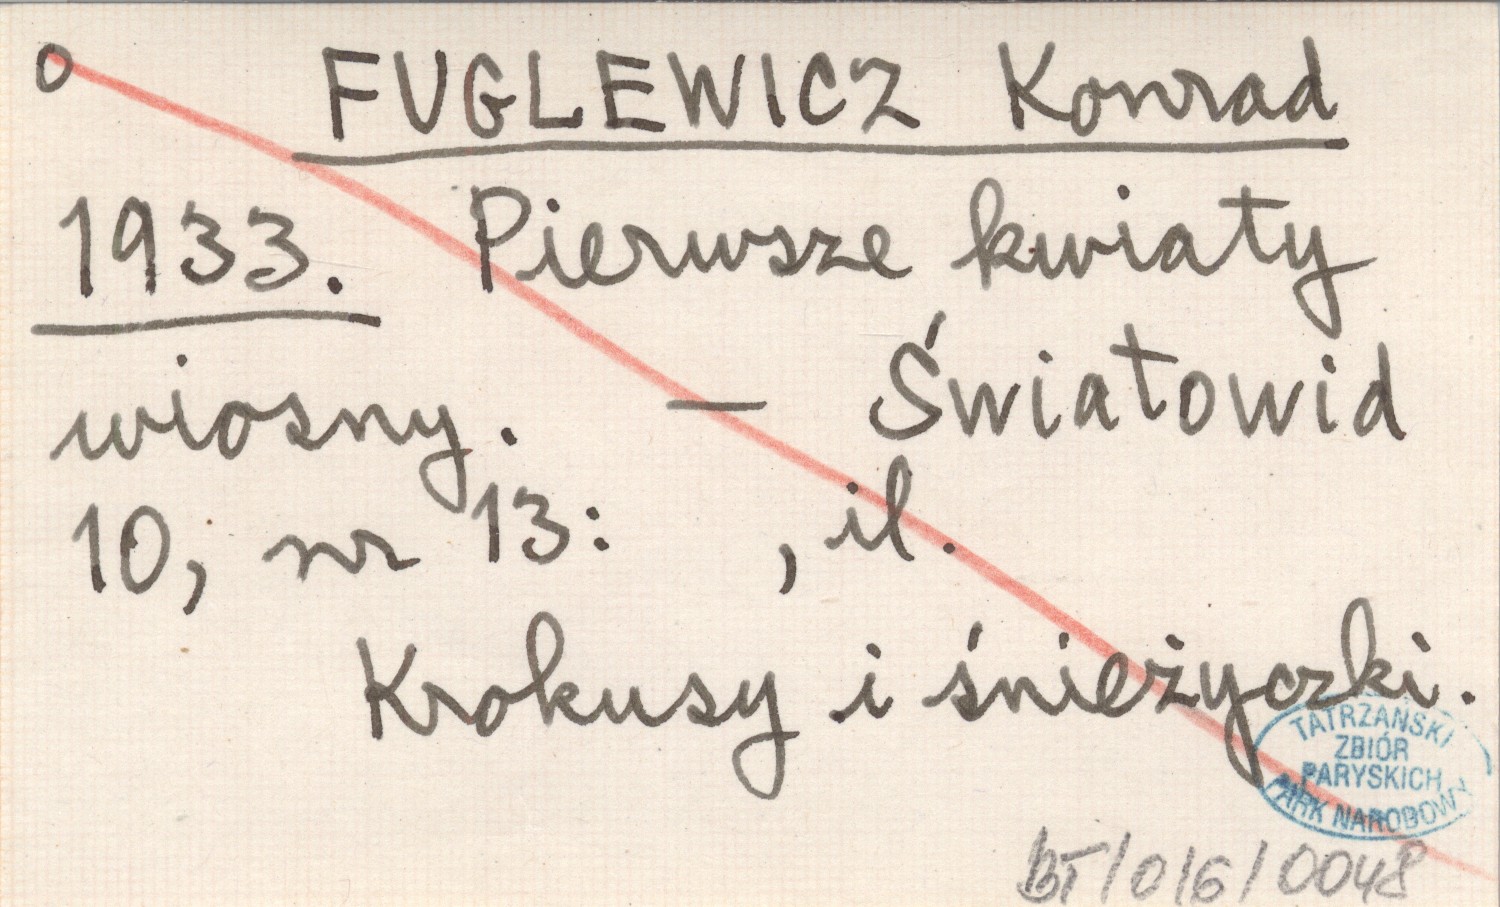 o FUGLEWICZ Konrad
1933. Pierwsze kwiaty
wiosny. — Światowid
10, nr 13: , il.
Krokusy i śnieżyczki.
TATRZAŃSKI
ZBIÓR
PARYSKICH
PARK NARODOWY
BT/0/6/0048